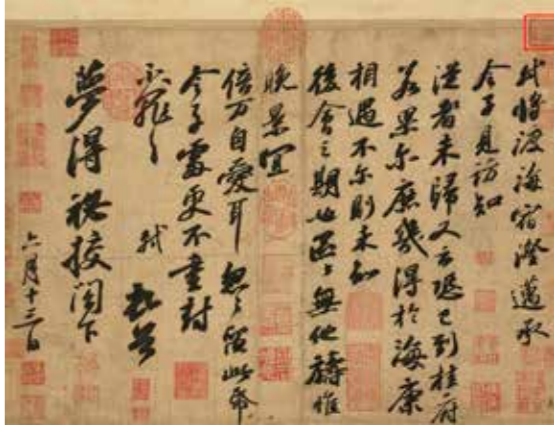 軾將渡海宿澄邁承
令子見訪知
從者未歸又云恐已到桂府
若果尔庶幾得於海康
相遇不尔則未知
後會之期也區々無他禱惟
晚景宜
倍万自愛耳忽々留此帋
令子處更不重封
不罪々
軾頓首
夢得祕校閣下
六月十三日